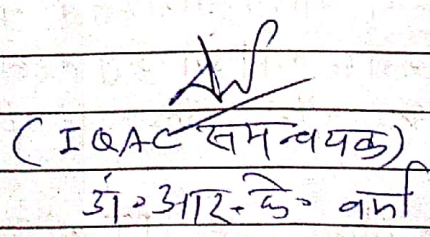 (IQAC समन्वयक)
डॉ. आर. के. वर्मा